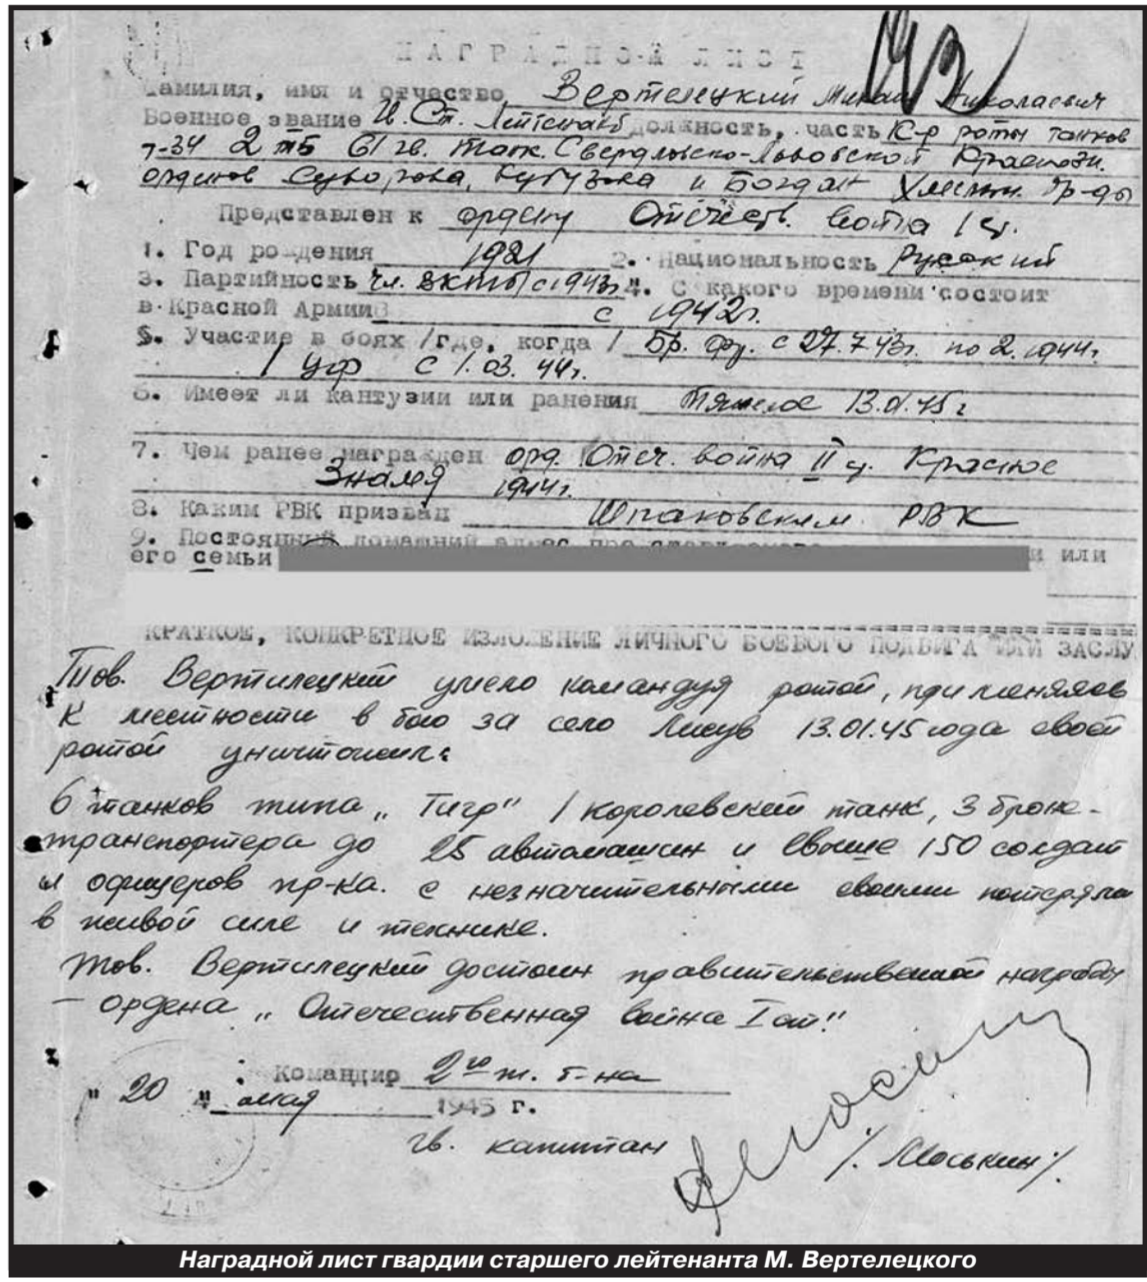 НАГРАДНОЙ ЛИСТ
Фамилия, имя и отчество Вертелецкий Михаил Николаевич
Военное звание Гв. Ст. Лейтенант должность, часть К-р роты танков
Т-34 2 тб 61 гв. танк. Свердловско-Львовской Краснозн.
орденов Суворова, Кутузова и Богдан Хмельн. бр-ды
Представлен к ордену Отечеств. война 1 ст.
1. Год рождения 1921 2. Национальность Русский
3. Партийность чл. ВКП/б/ с 1943г 4. С какого времени состоит
в Красной Армии с 1942г.
5. Участие в боях /где, когда/ Бр. фр. с 27.7.43г. по 2.1944г.
1 Уф с 1.03.44г.
6. Имеет ли кантузии или ранения Тяжелое 13.01.45г
7. Чем ранее награжден орд. Отеч. война II ст. Красное
Знамя 1944г.
8. Каким РВК призван Шпаковским РВК
9. Постоянный домашний адрес представляемого и или
его семьи
КРАТКОЕ, КОНКРЕТНОЕ ИЗЛОЖЕНИЕ ЛИЧНОГО БОЕВОГО ПОДВИГА ИЛИ ЗАСЛУ
Тов. Вертилецкий умело командуя ротой, применяясь
к местности в бою за село Лисув 13.01.45 года своей
ротой уничтожил:
6 танков типа „Тигр" 1 королевский танк, 3 броне-
транспортера до 25 автомашин и свыше 150 солдат
и офицеров пр-ка. с незначительными своими потерями
в живой силе и технике.
Тов. Вертилецкий достоин правительственной награды
– ордена „Отечественная война I ст."
Командир 2го т. б-на
" 20 " мая 1945 г.
гв. капитан /. Моськин /.
Наградной лист гвардии старшего лейтенанта М. Вертелецкого